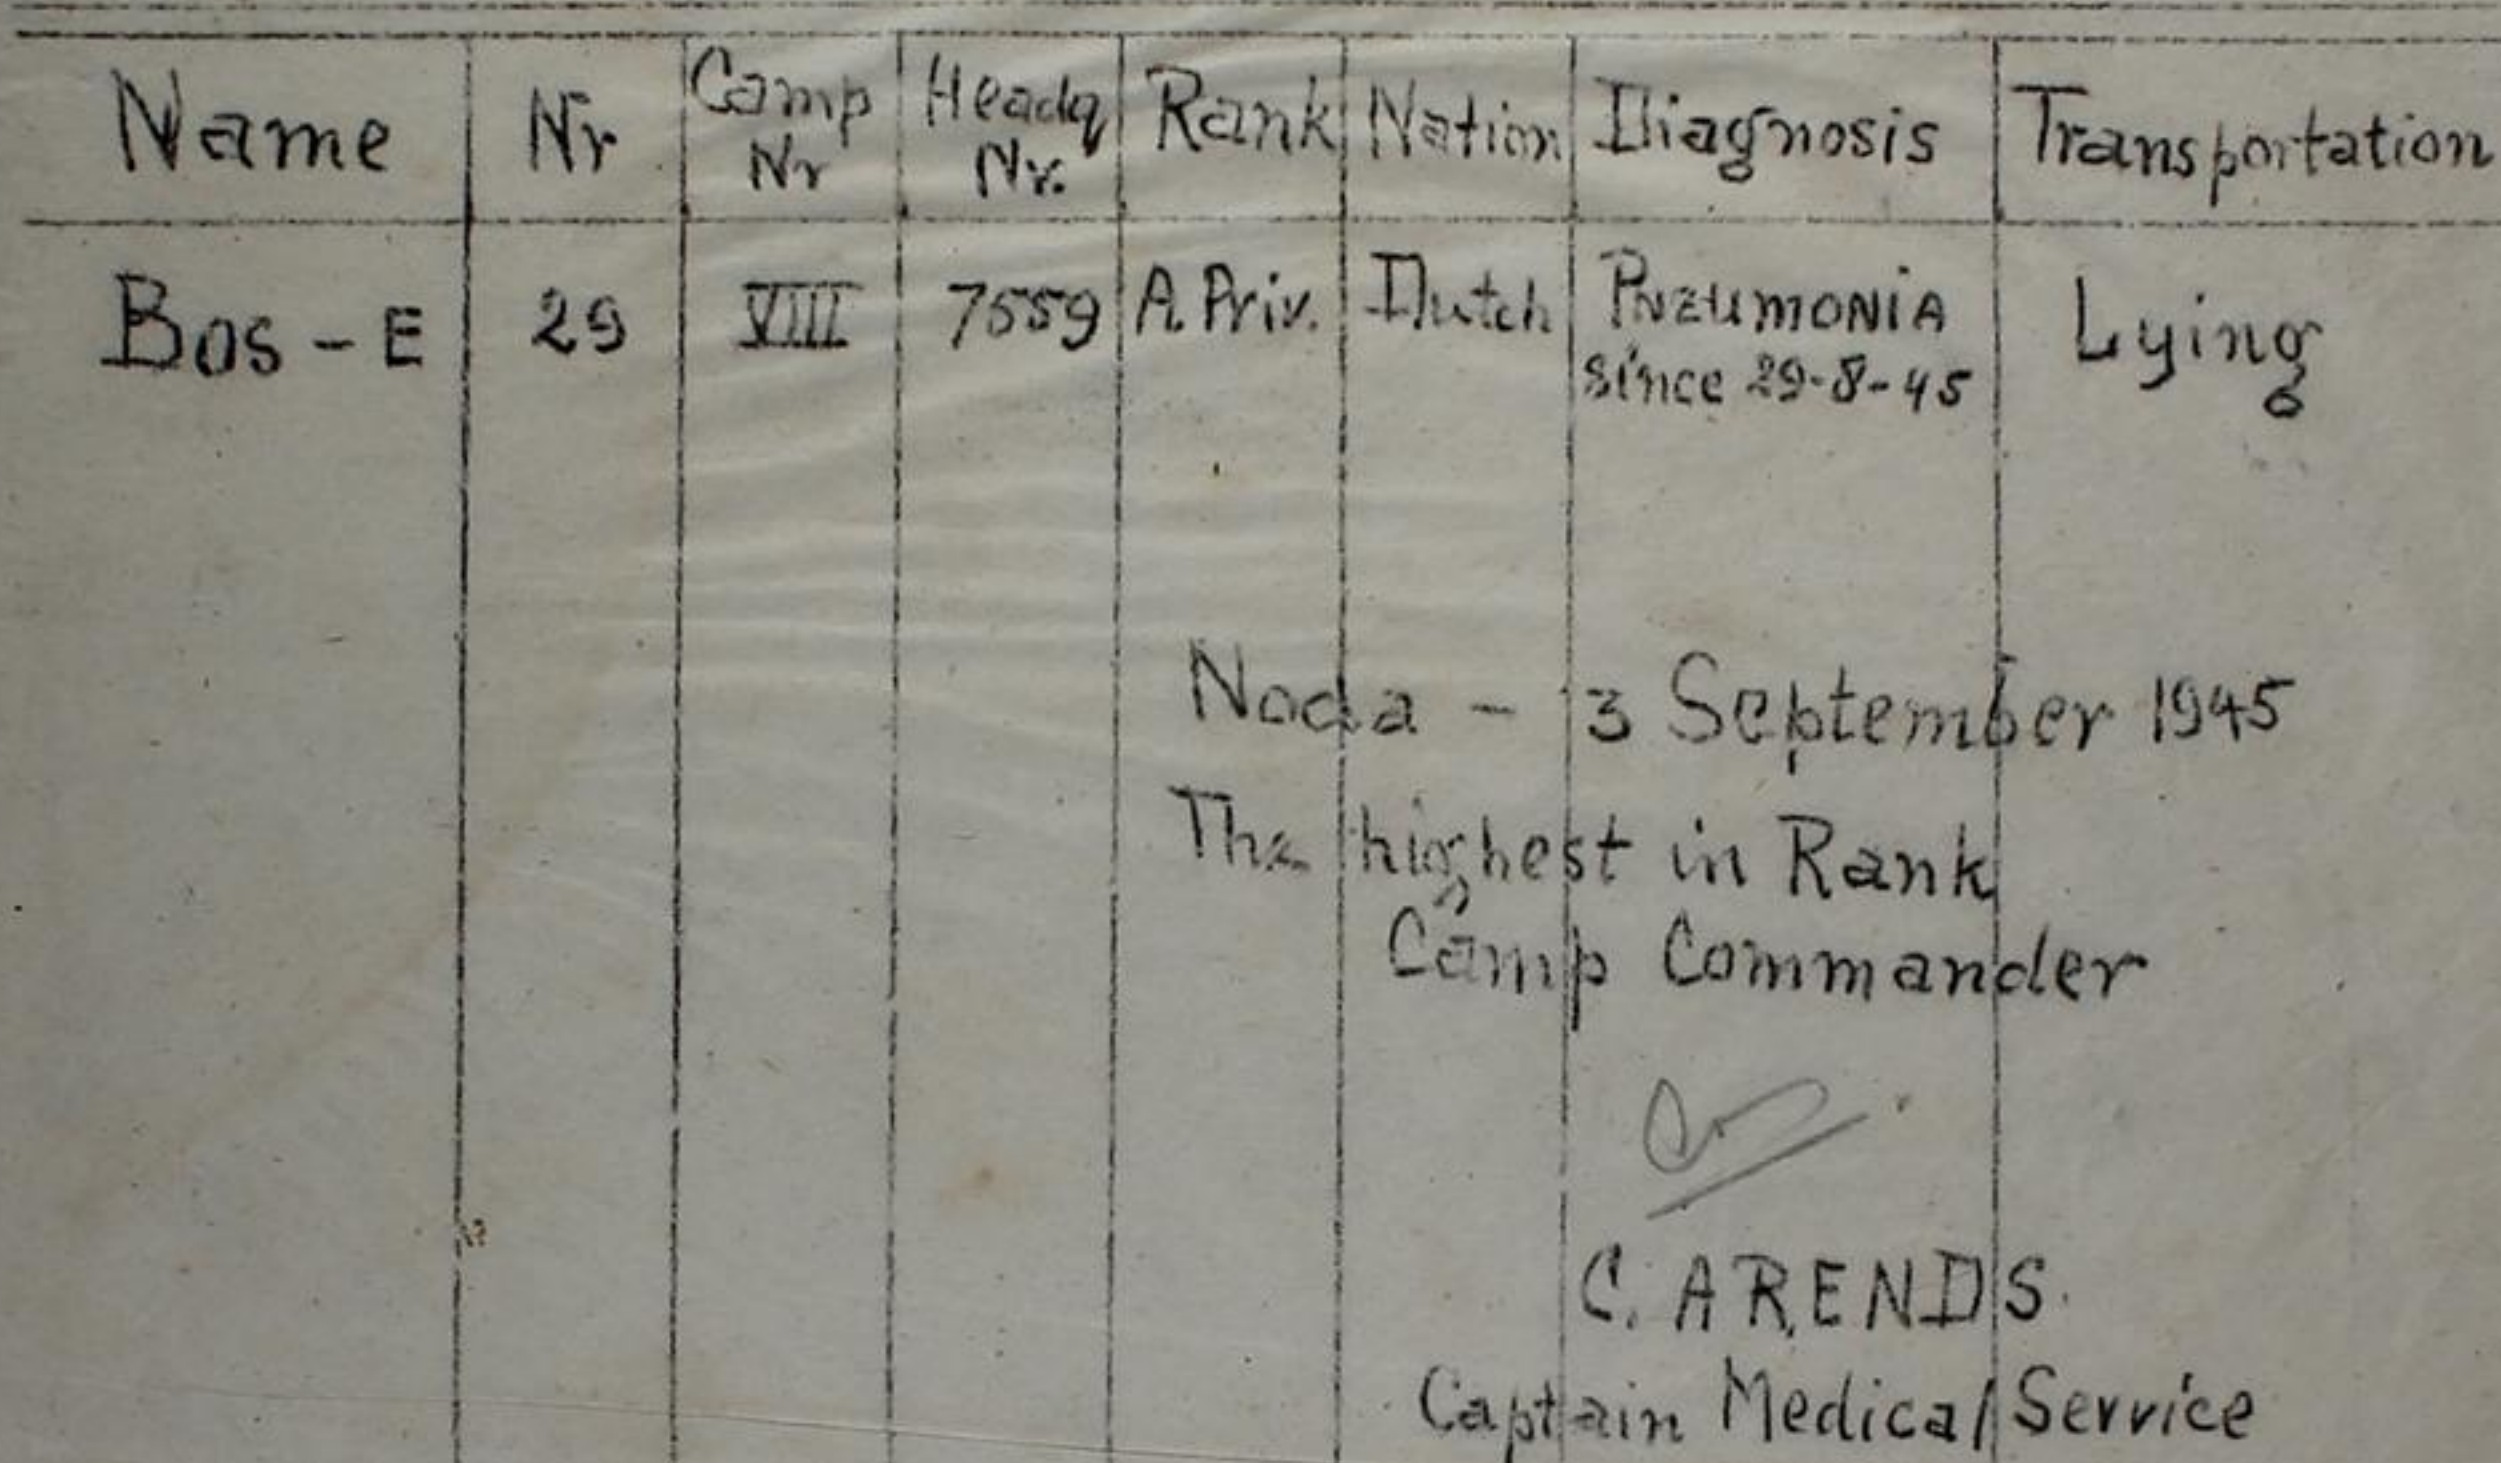 Name Nr Camp Nr Headq Nr. Rank Nation Diagnosis Transportation
Bos - E 29 VIII 7559 A. Priv. Dutch Pneumonia Lying
since 29-8-45
Noda - 3 September 1945
The highest in Rank
Camp Commander
C. ARENDS.
Captain Medical Service